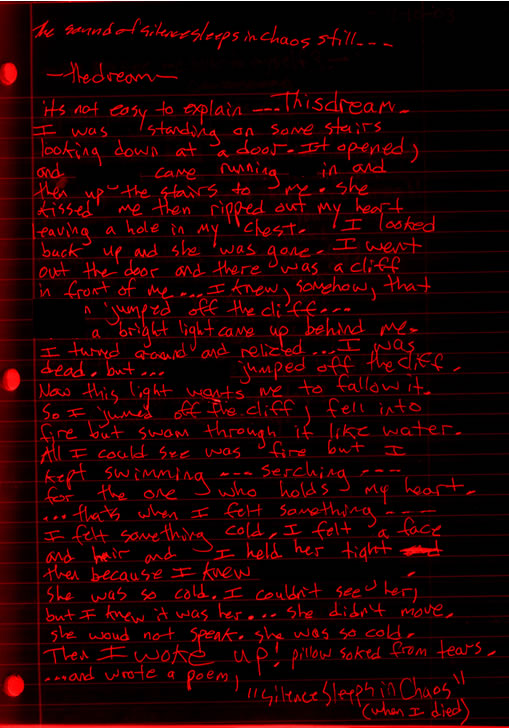 the sound of silence sleeps in chaos still---
—the dream—
its not easy to explain --- This dream.
I was standing on some stairs
looking down at a door. It opened,
and came running in and
then up the stairs to me. she
kissed me then ripped out my heart
leaving a hole in my chest. I looked
back up and she was gone. I went
out the door and there was a cliff
in front of me... I knew, somehow, that
n jumped off the cliff...
a bright light came up behind me.
I turned around and relized... I was
dead. but... jumped off the cliff.
Now this light wants me to fallow it.
So I jumed off the cliff, fell into
fire but swam through it like water.
All I could see was fire but I
kept swimming --- serching ---
for the one who holds my heart.
...thats when I felt something ---
I felt something cold. I felt a face
and hair and I held her tight
then because I knew
she was so cold. I couldn't see her,
but I knew it was her... she didn't move.
she woud not speak. she was so cold.
Then I woke up! pillow soked from tears.
...and wrote a poem,
"Silence Sleeps in Chaos"
(when I died)